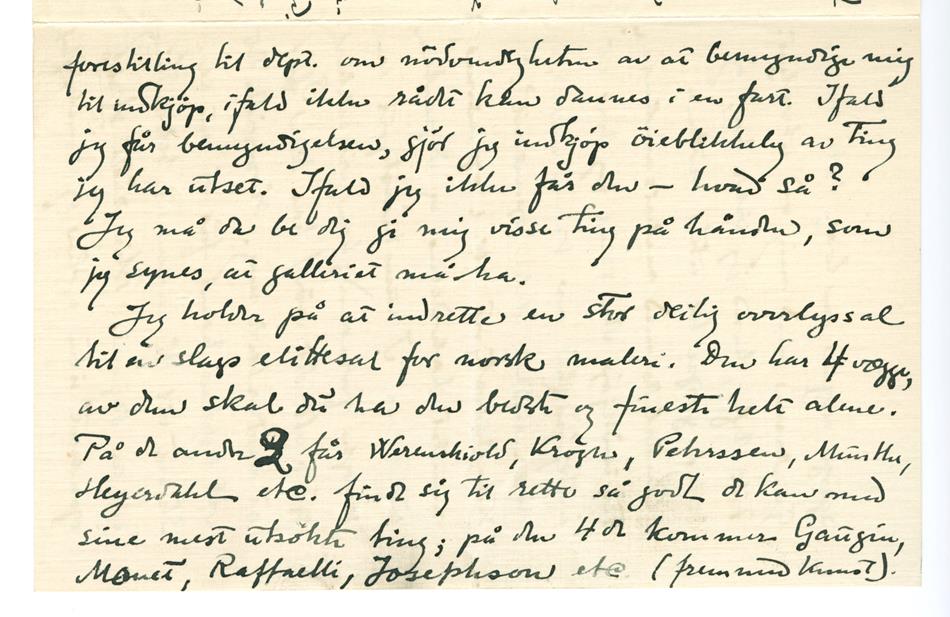 forestilling til dept. om nödvendigheten av at bemyndige mig
til indkjøp, ifald ikke rådet kan dannes i en fart. Ifald
jeg får bemyndigelsen, gjör jeg indkjøp öieblikkelig av ting
jeg har utset. Ifald jeg ikke får den – hvad så?
Jeg må da be dig gi mig visse ting på hånden, som
jeg synes, at galleriet må ha.
Jeg holder på at indrette en stor deilig overlyssal
til en slags elittesal for norsk maleri. Den har 4 vægge,
av dem skal du ha den bedste og fineste helt alene.
På de andre 2 får Werenskiold, Krogh, Peterssen, Munthe,
Heyerdahl etc. finde sig til rette så godt de kan med
sine mest utsökte ting; på den 4de kommer Gaugin,
Manet, Raffaelli, Josephson etc (fremmed kunst).